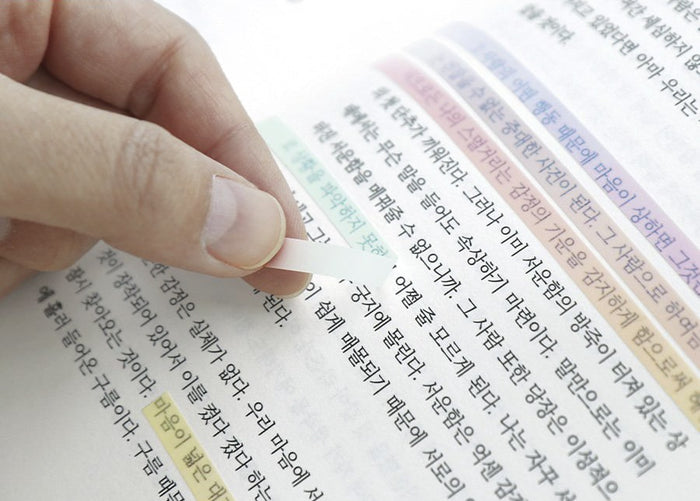 대한 세심하지 않
하고 있었다면 아마 우리는
않을 것이다.
어떤 행동 때문에 마음이 상하면 그것은
수 없는 중대한 사건이 된다. 그 사람으로 하여금
나의 스멀거리는 감정의 기운을 감지하게 함으로써
못 단추가 끼워진다. 그러나 이미 서운함의 방죽이 터져 있는 상
무슨 말을 들어도 속상하기 마련이다. 말만으로는 이미
서운함을 메꿔줄 수 없으니까. 그 사람 또한 당장은 이성적으
파악하지 못하 어쩔 줄 모르게 된다. 나는 자꾸
궁지에 몰린다. 서운함은 억센 감
쉽게 매몰되기 때문에 서로의
된다.
감정은 실체가 없다. 우리 마음에 서
것이 장착되어 있어서 이를 켰다 껐다 하는
찾아오는 것이다. 마음이 넓은
에 흘러 들어온 구름이다. 구름 때문